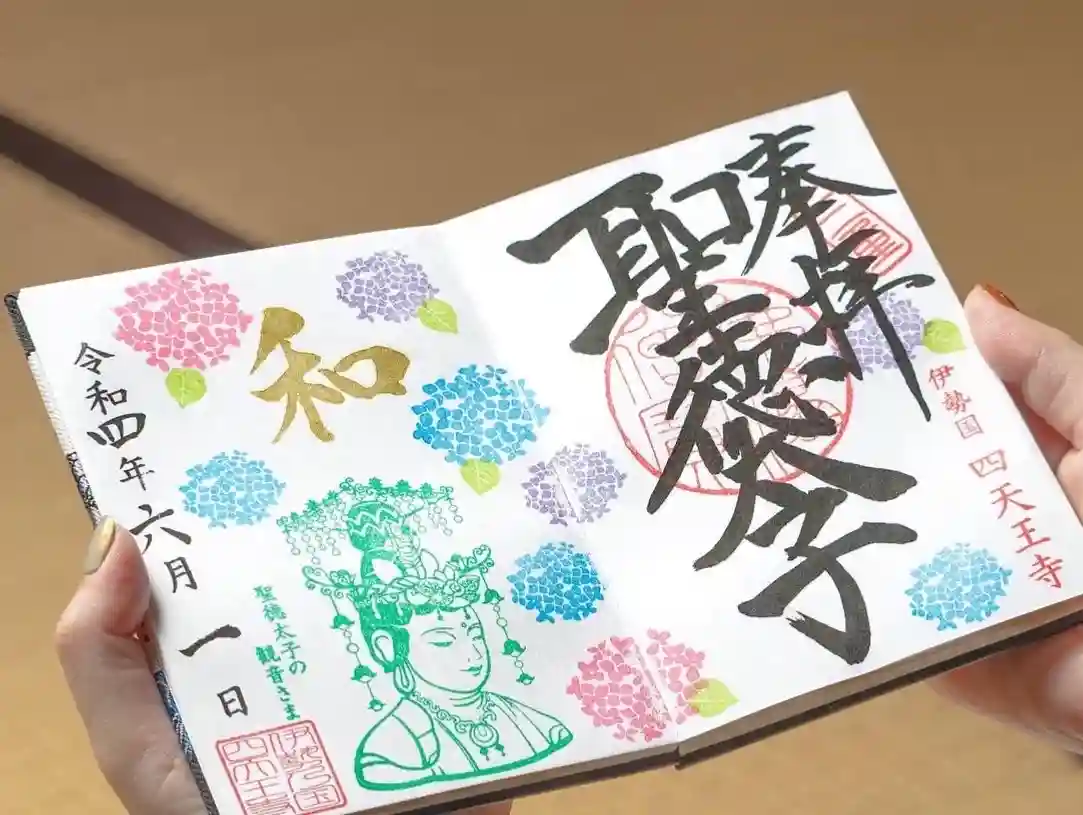 奉拝
聖徳太子
伊勢国 四天王寺
和
令和四年六月一日
聖徳太子の
観音さま
伊勢国
四天王寺